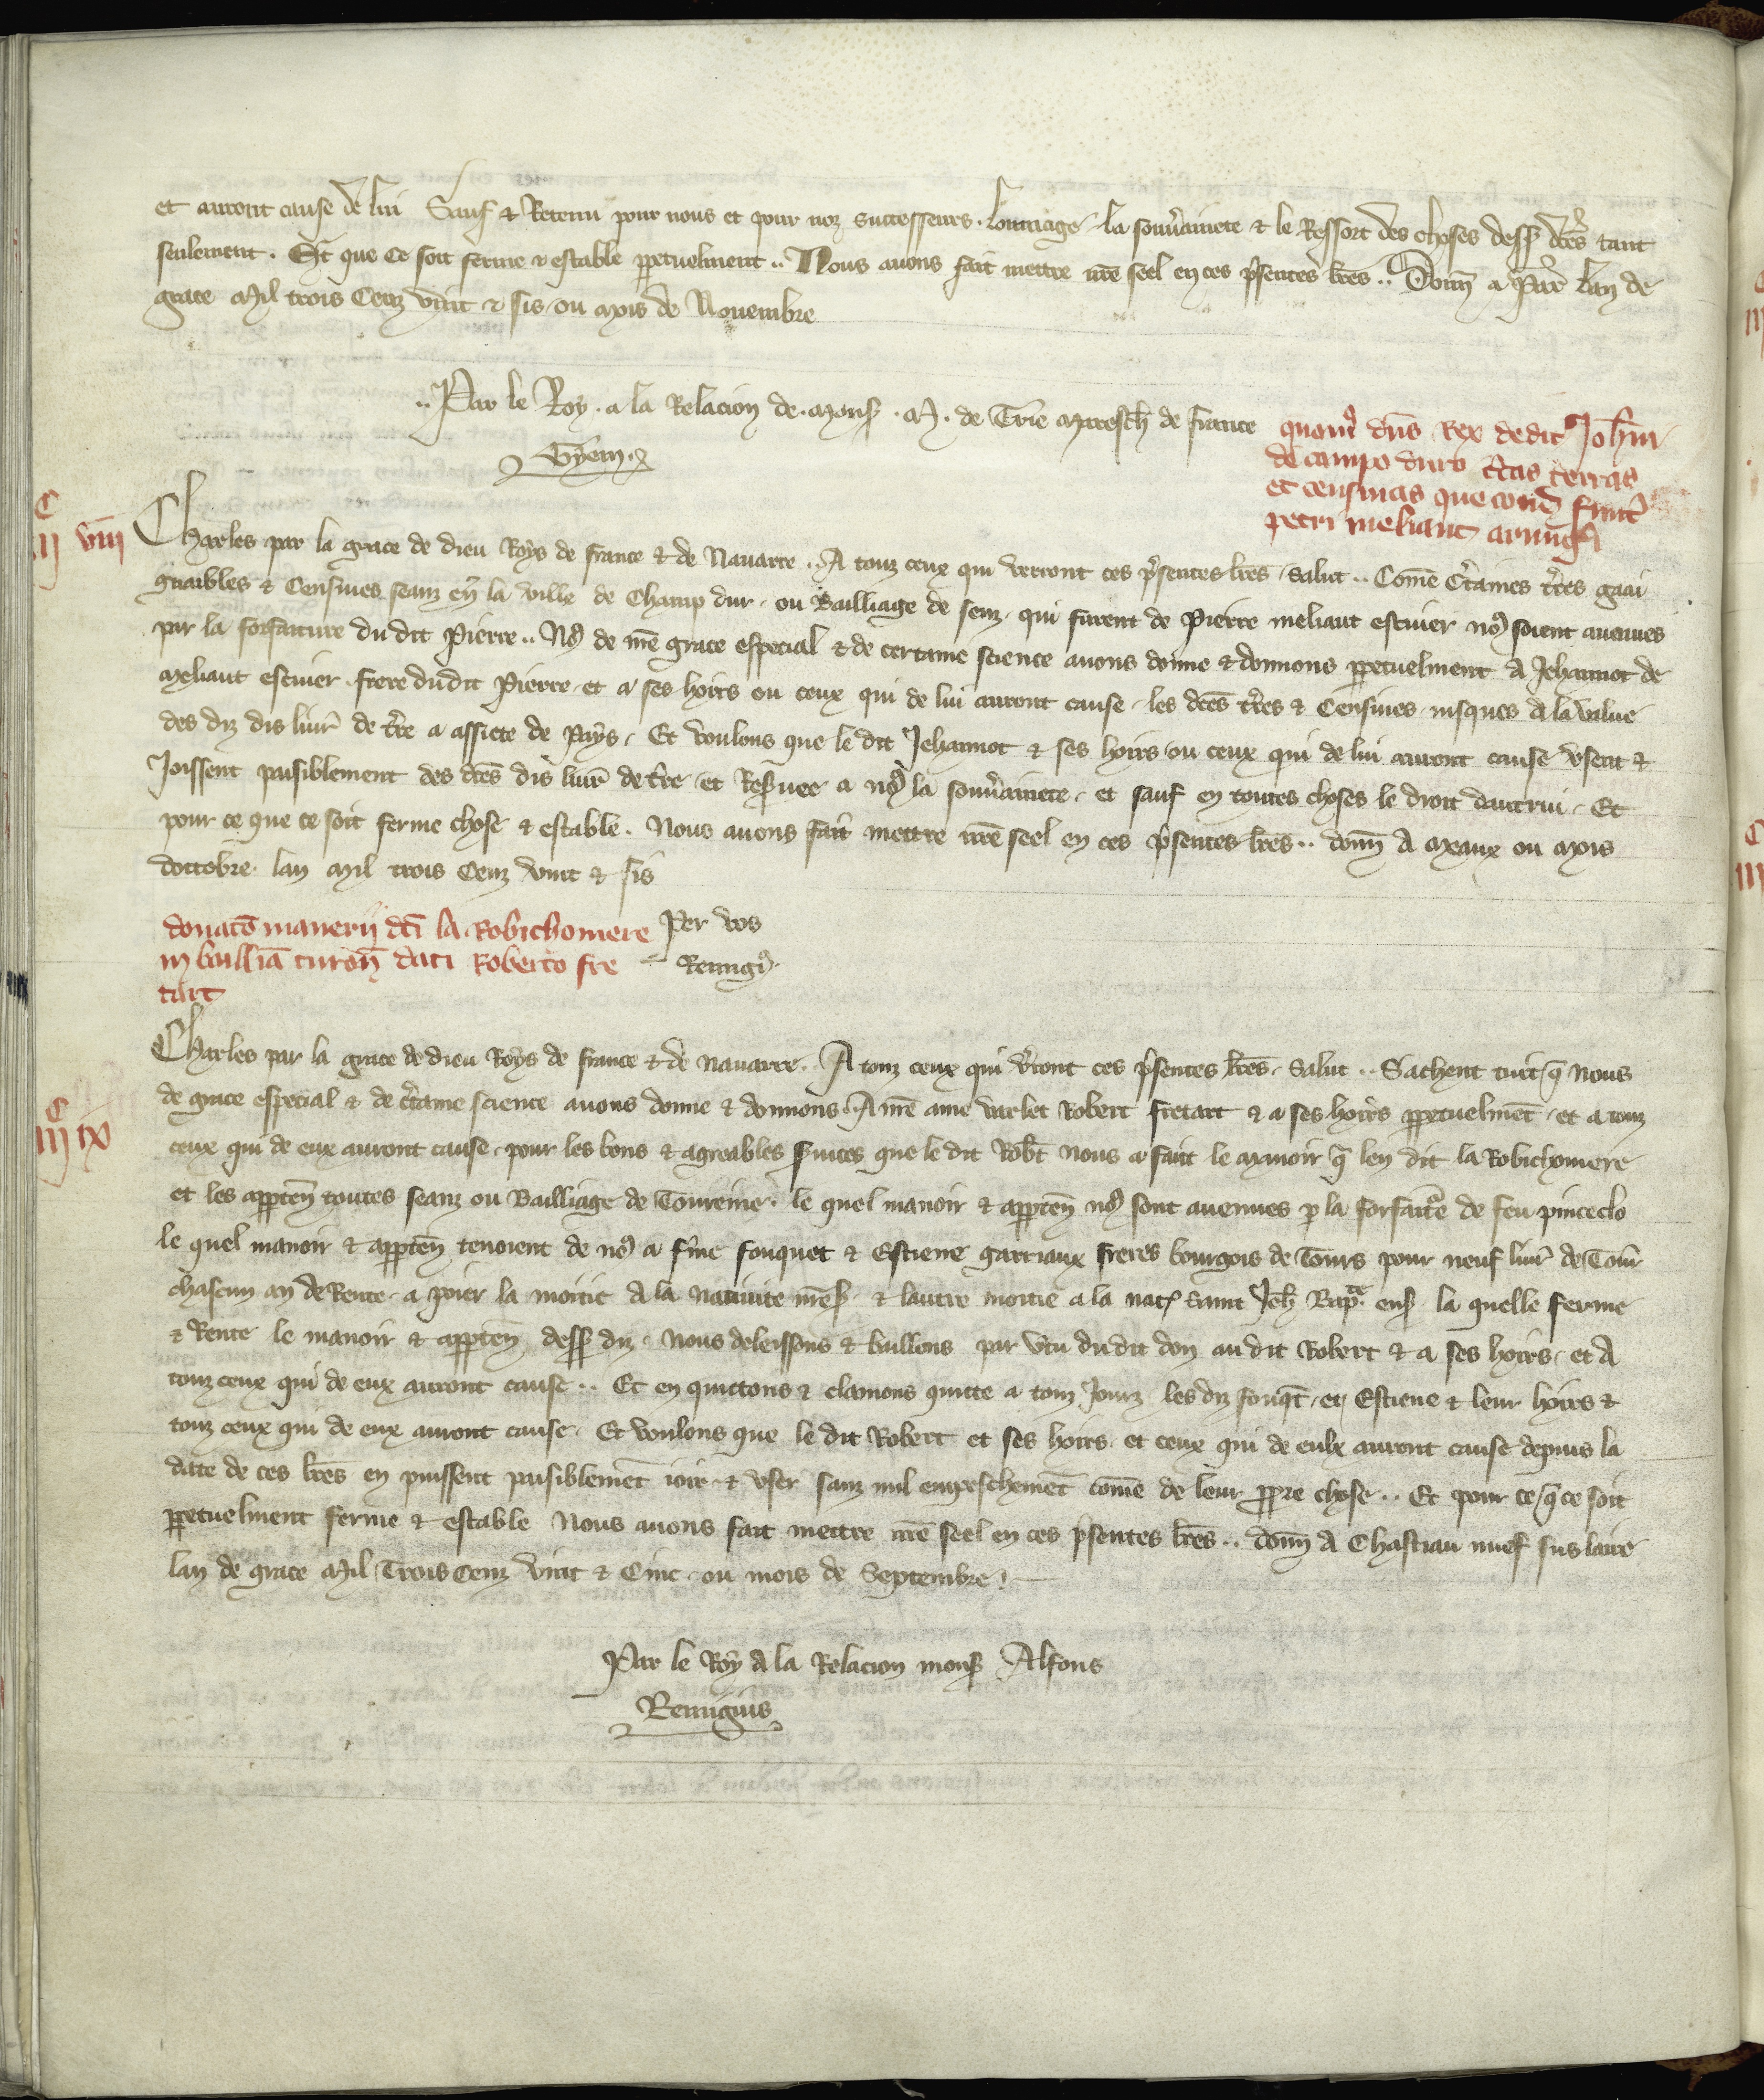 et auront cause de lui Sauf & Retenu pour nous et pour noz successeurs. lommage la souv̄ainete & le Ressort des choses dess᷒ dc̄es tant
seulement. Et que ce soit ferme & estable ꝑpetuelment.. Nous auons fait mettre nr̄e seel en ces p̄sentes lr̄es.. Donn̄ a Par̄ Lan de
grace Mil trois Cenz vint & sis ou mois de Nouembre
..Par le Roy. a la Relacion de. mons᷒. M. de Trie Maresch̄ de france
Gyem.
quom̄ dn̄s Rex dedit Joh̄ni
de campo duro c̄tas terras
et censiuas que cond̄ fuer̄t
petri meliant armiḡi
C
ij viij
Charles par la grace de dieu Roys de france & de Nauarre.. A touz ceux qui verront ces p̄sentes lr̄es, salut.. Com̄e c̄taines t̄res gaai
gnaibles & Censiues seanz en la ville de Champ dur, ou Bailliage de senz, qui furent de Pierre meliant escuier no᷒ soient auenues
par la forfaiture du dit Pierre.. No᷒ de nr̄e grace especial & de certaine science auons donne & donnons ꝑpetuelment A Jehannot de
Meliant escuier frere dudit Pierre, et a ses hoirs ou ceux qui de lui auront cause, les dc̄es t̄res & Censiues, iusques a la value
des diz dis liur̄ de t̄re a assiete de Pays, Et voulons que le dit Jehannot & ses hoirs, ou ceux qui de lui auront cause vsent &
Joissent paisiblement des dc̄es dis liur̄ de t̄re, et Res̄uee a no᷒ la souv̄ainete, et sauf en toutes choses le droit dautrui, Et
pour ce que ce soit ferme chose & estable. Nous auons fait mettre nr̄e seel en ces p̄sentes lr̄es.. donn̄ A Meaux ou Mois
doctobre lan Mil trois Cenz vint & sis
donac̄o manerij dc̄i la Robichomere
in bailliā turon̄ dati Roberto fre
tart
Per vos
Remig᷒.
C
iij ix
Charles par la grace de dieu Roys de france & de nauarre. A touz ceux qui v̄ront ces p̄sentes lr̄es, salut.. Sachent tuit q̄ nous
de grace especial & de c̄taine science auons donne & donnons. A nr̄e ame varlet Robert fretart & a ses hoirs ꝑpetuelmēt, et a touz
ceux qui de eux auront cause, pour les bons & agreables s̄uices que le dit Rob̄t nous a fait le manoir q̄ len dit la Robichomere
et les apꝑten̄ toutes seanz ou Bailliage de Toureine. le quel manoir & apꝑten̄ no᷒ sont auenues ꝑ la forfait̄e de feu pinceclo
le quel manoir & apꝑten̄ tenoient de no᷒ a f̄me fouquet & Estiene gatiaux freres bourgois de Tours pour neuf liur̄ de Tour̄
chascun an de Rente, a poier la moitie a la natiuite nr̄e s᷒ & lautre moitie a la nat᷒ saint Jeh̄ Bap̄te ens᷒ la quelle ferme
& Rente le manoir & apꝑten̄ dess᷒ diz, Nous deleissons & baillons par v̄tu du dit don au dit Robert & a ses hoirs, et A
touz ceux qui de eux auront cause.. Et en quittons & clamons quitte a touz Jourz les diz fouq̄t, et Estiene & leur hoirs &
touz ceux qui de eux auront cause, Et voulons que le dit Robert et ses hoirs, et ceux qui de eulx auront cause depuis la
date de ces lr̄es en puissent paisiblemēt ioir & vser sanz nul empeschemēt com̄e de leur ꝓpre chose.. Et pour ce q̄ ce soit
ꝑpetuelment ferme & estable Nous auons fait mettre nr̄e seel en ces p̄sentes lr̄es.. donn̄ A Chastiau nuef sus laire
lan de grace Mil Trois Cenz vint & Cinc, ou mois de Septembre.
Par le Roy A la Relacion mons᷒ Alfons
Remigius